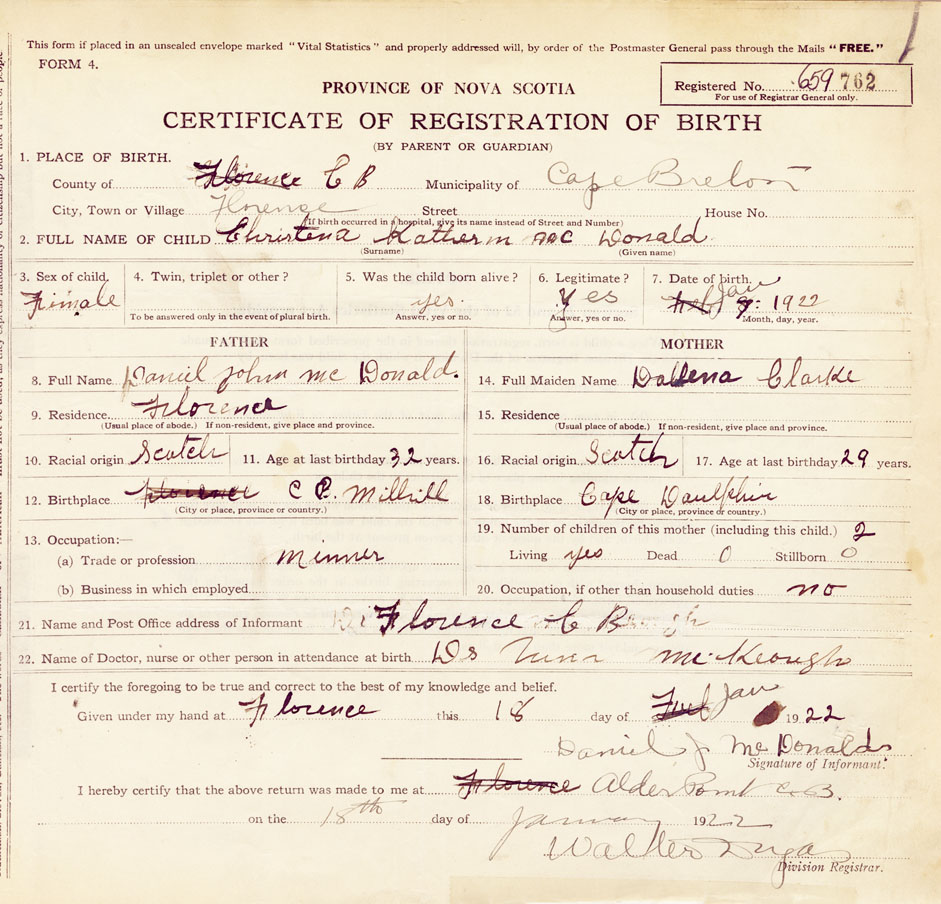 This form if placed in an unsealed envelope marked "Vital Statistics" and properly addressed will, by order of the Postmaster General pass through the Mails "FREE."
FORM 4.
PROVINCE OF NOVA SCOTIA
Registered No. 659 762
For use of Registrar General only.
CERTIFICATE OF REGISTRATION OF BIRTH
(BY PARENT OR GUARDIAN)
1. PLACE OF BIRTH.
County of Florence C B Municipality of Cape Breton
City, Town or Village Florence Street House No.
(If birth occurred in a hospital, give its name instead of Street and Number)
2. FULL NAME OF CHILD Christena Katherin Mc Donald
(Surname) (Given name)
3. Sex of child. 4. Twin, triplet or other? 5. Was the child born alive? 6. Legitimate? 7. Date of birth.
Fimale yes. Yes Jan 9 1922
To be answered only in the event of plural birth. Answer, yes or no. Answer, yes or no. Month, day, year.
FATHER MOTHER
8. Full Name Daniel John Mc Donald. 14. Full Maiden Name Dollena Clarke
9. Residence. Florence 15. Residence
(Usual place of abode.) If non-resident, give place and province. (Usual place of abode.) If non-resident, give place and province.
10. Racial origin Scotch 11. Age at last birthday 32 years. 16. Racial origin Scotch 17. Age at last birthday 29 years.
12. Birthplace Florence C B. Millvill 18. Birthplace Cape Daulphin
(City or place, province or country.) (City or place, province or country.)
19. Number of children of this mother (including this child.) 2
13. Occupation:—
(a) Trade or profession Minner Living yes Dead 0 Stillborn 0
(b) Business in which employed 20. Occupation, if other than household duties no
21. Name and Post Office address of Informant Florence C B
22. Name of Doctor, nurse or other person in attendance at birth Ds McKeough
I certify the foregoing to be true and correct to the best of my knowledge and belief.
Given under my hand at Florence this 18 day of Jan 1922
Daniel J McDonald
Signature of Informant.
I hereby certify that the above return was made to me at Florence Alder Point C.B.
on the 18th day of January 1922
Walter Dugas
Division Registrar.